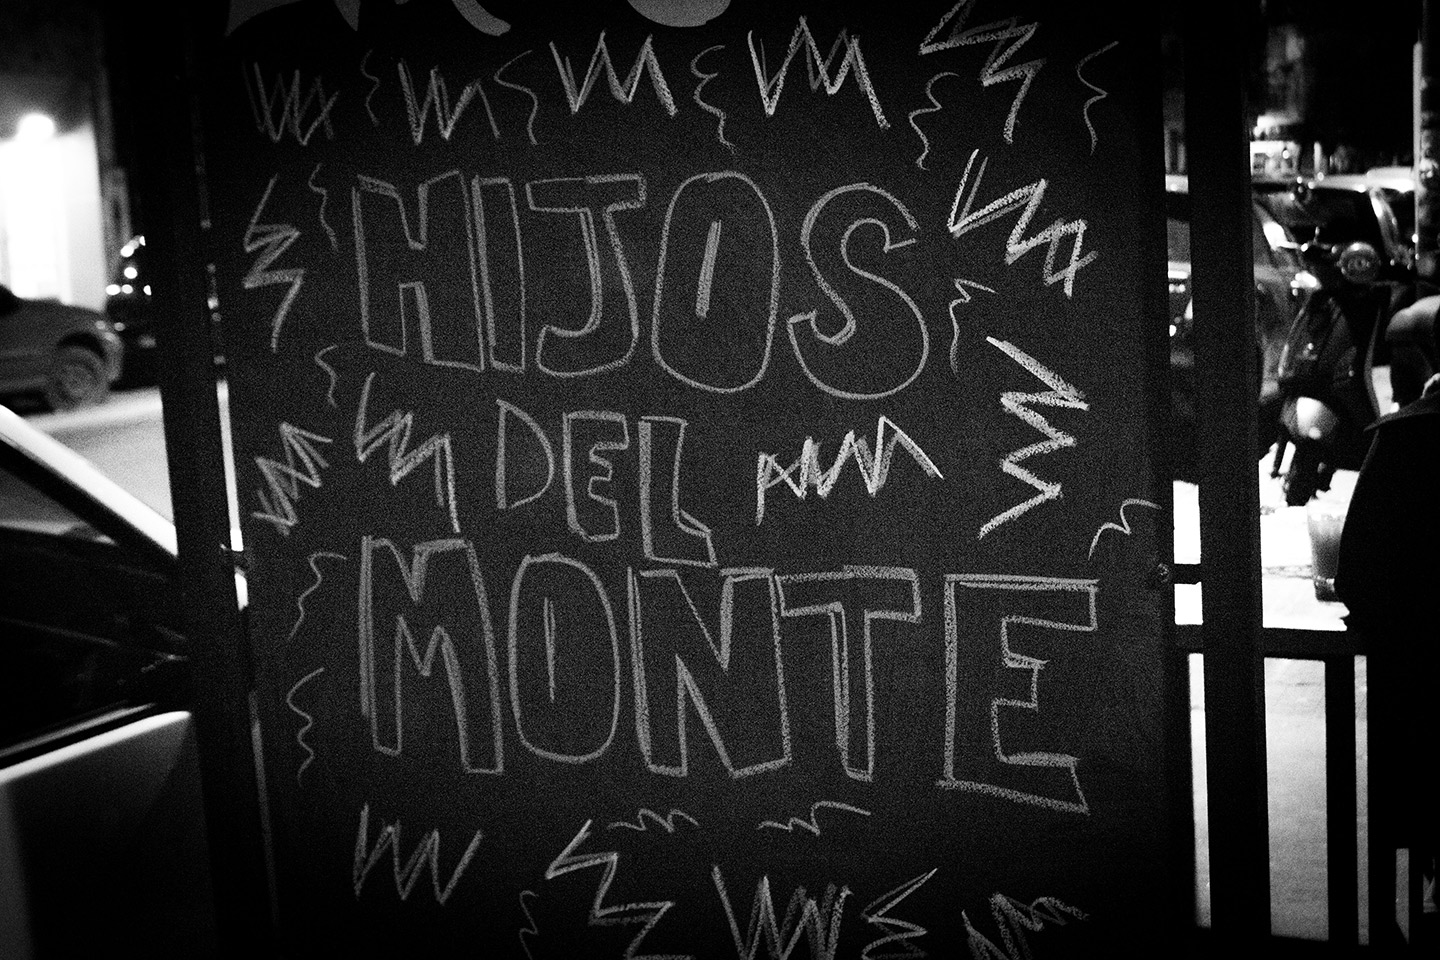 HIJOS
DEL
MONTE